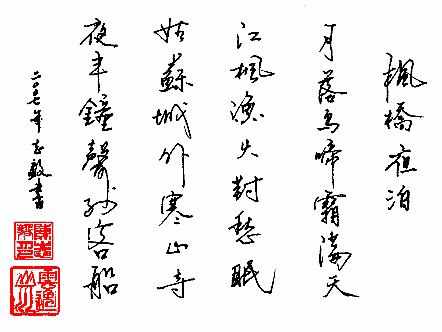 楓橋夜泊
月落烏啼霜滿天
江楓漁火對愁眠
姑蘇城外寒山寺
夜半鐘聲到客船
二〇〇七年志毅書